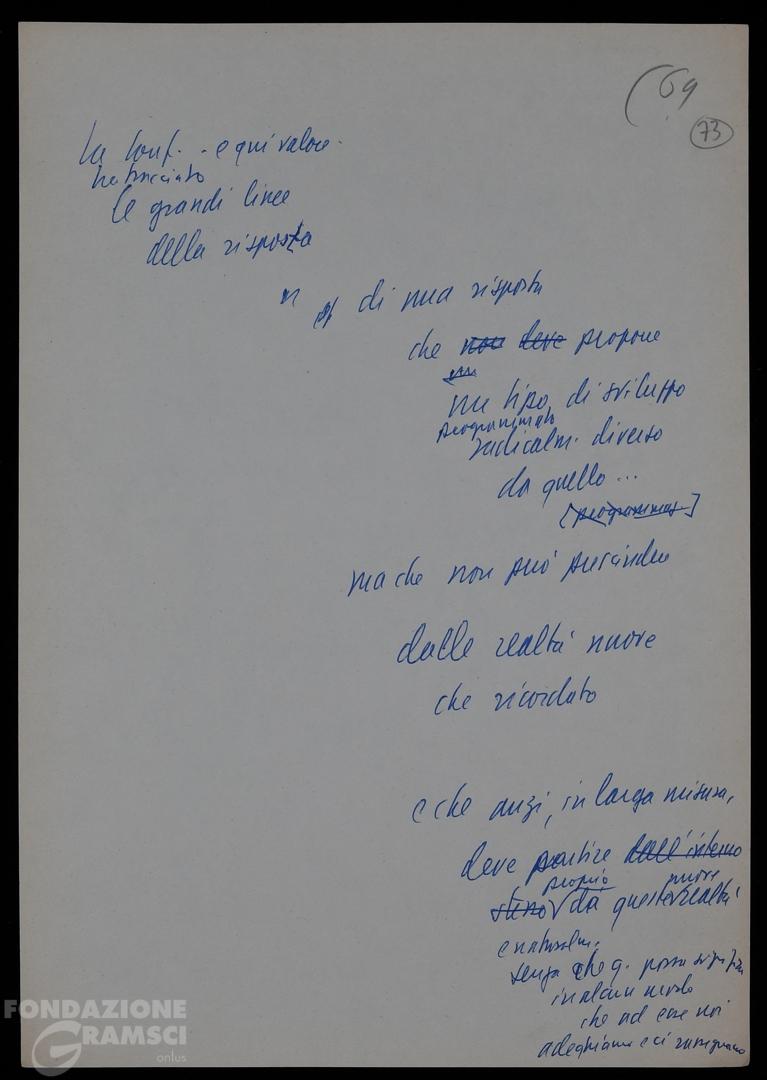 (69
73
La Conf. - e qui valore -
ha tracciato
le grandi linee
della risposta
di una risposta
che non deve propone
un
un tipo di sviluppo
programmato
radicalm. diverso
da quello ...
[programmat]
ma che non può prescindere
dalle realtà nuove
che ricordato
e che anzi, in larga misura,
deve partire dall'interno
proprio nuove
stesso da queste realtà
e naturalm.
senza che q. possa signific
in alcun modo
che ad esse noi
adeghiamo e ci rassegnamo
FONDAZIONE
GRAMSCI
onlus